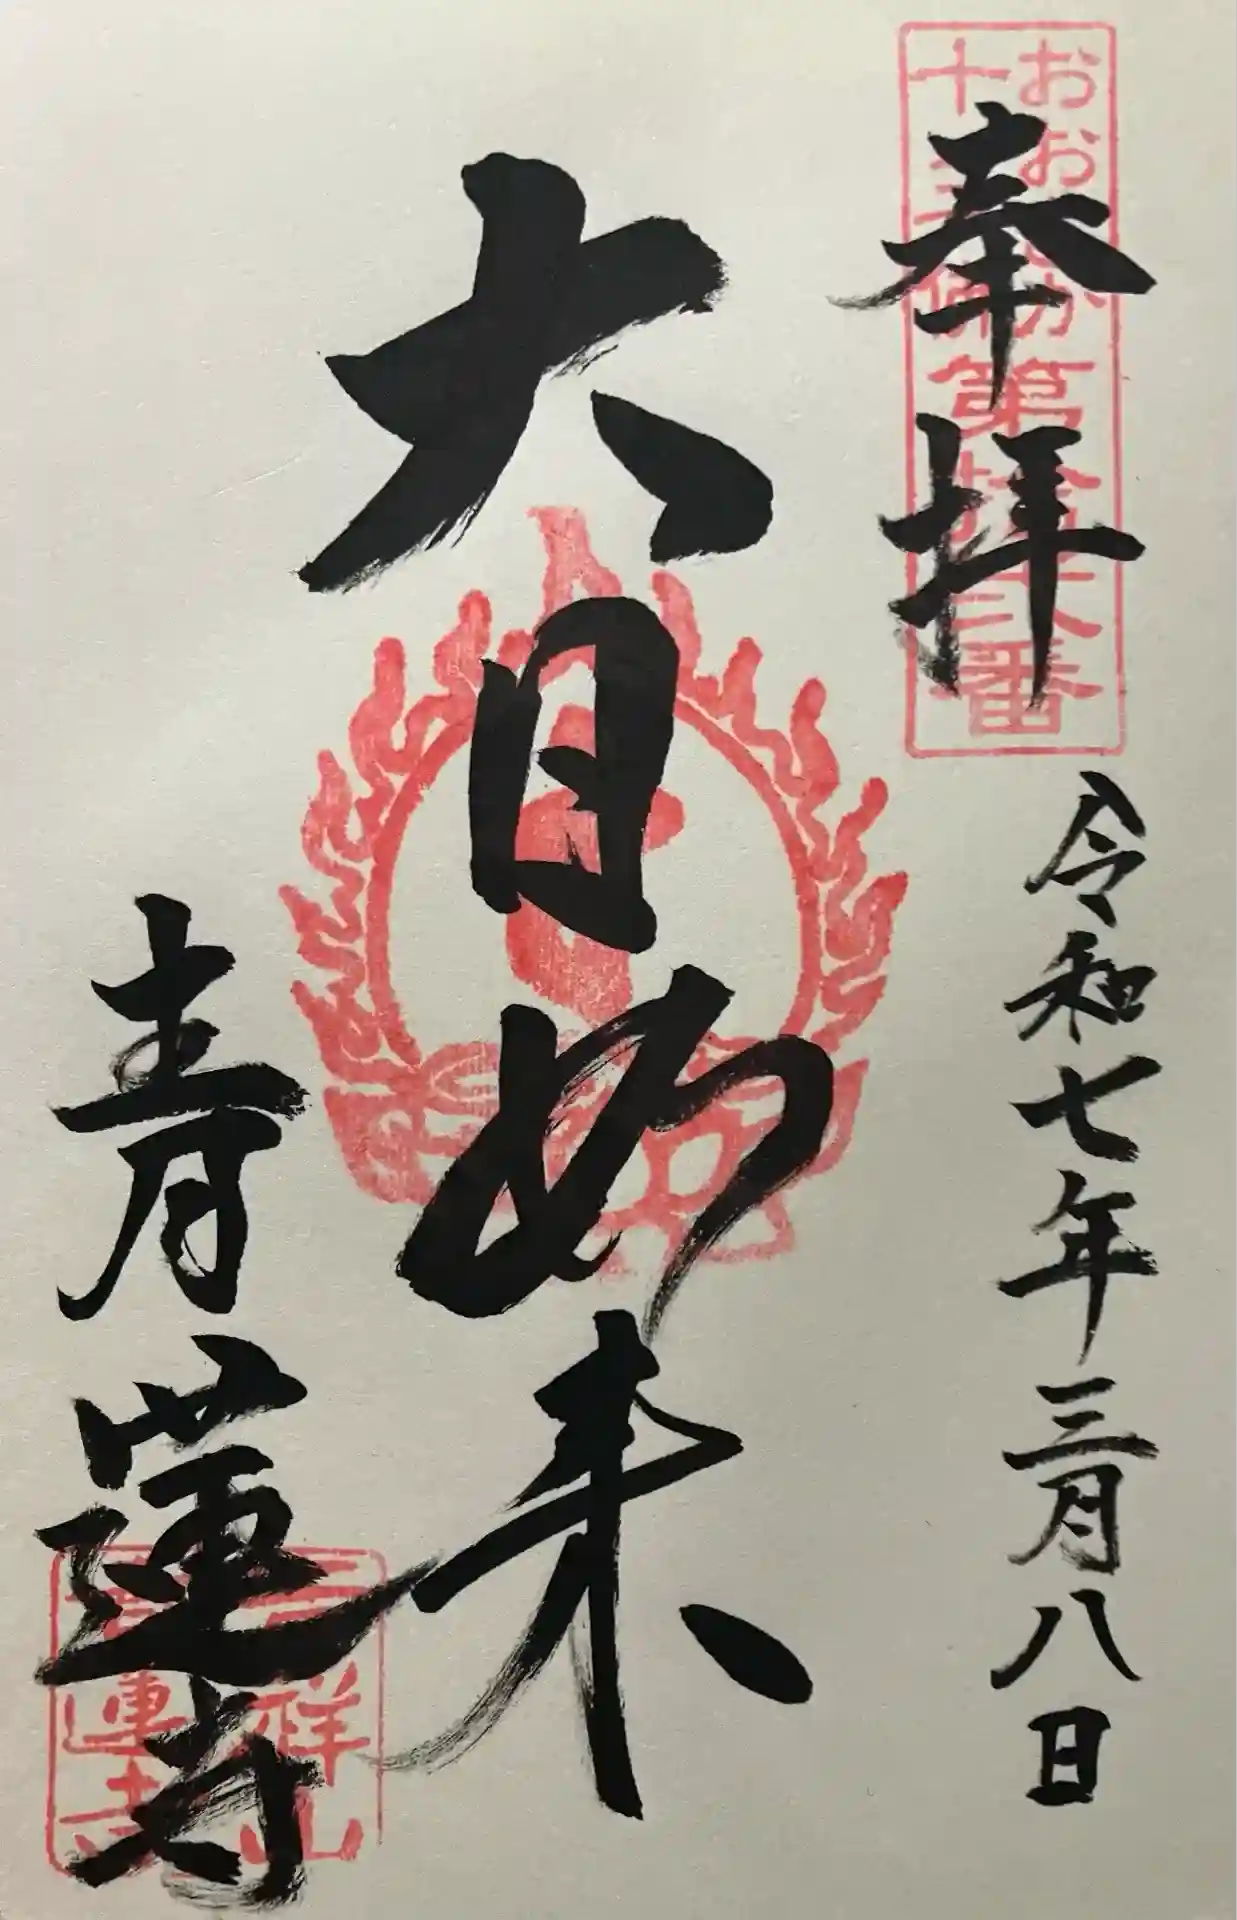 おおさか
十三佛
第拾弐番
奉拝
令和七年三月八日
大日如来
青蓮寺
祥山
蓮寺